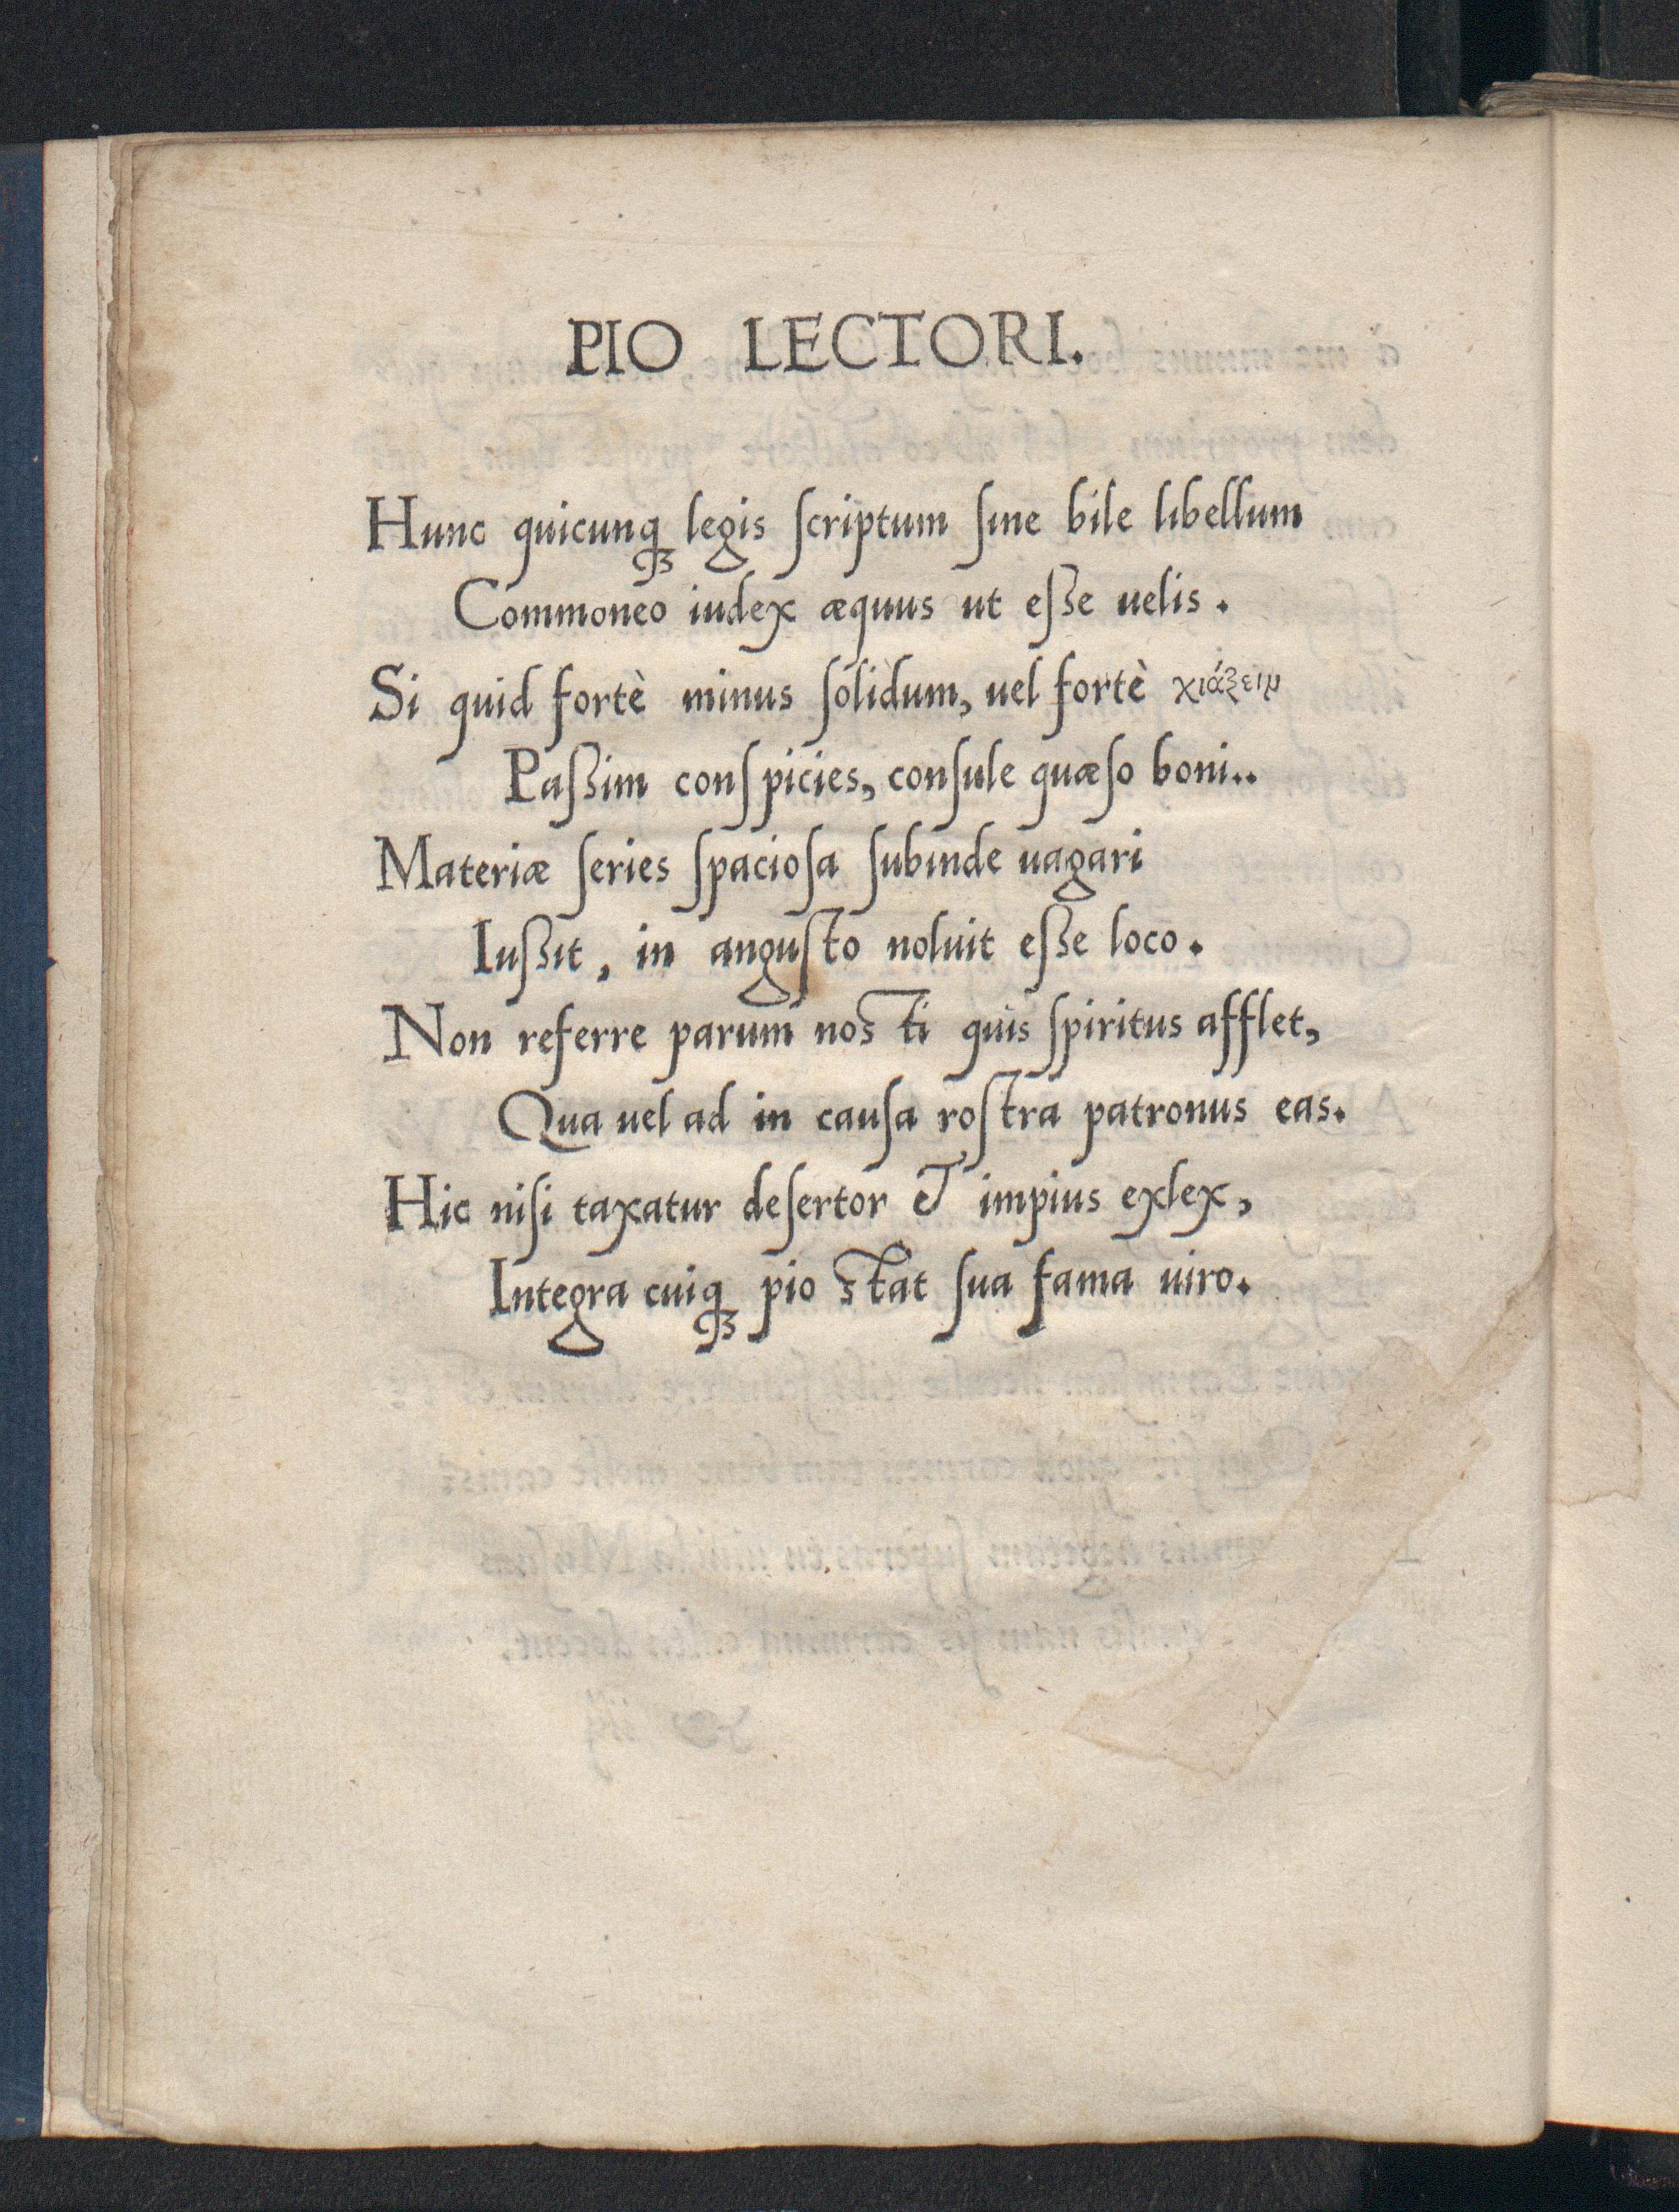 PIO LECTORI.
Hunc quicunqꝫ legis ſcriptum ſine bile libellum
Commoneo iudex æquus ut eſſe uelis.
Si quid fortè minus ſolidum, uel fortè χιάζειν
Paſſim conſpicies, conſule quæſo boni..
Materiæ ſeries ſpacioſa ſubinde uagari
Iuſſit, in anguſto noluit eſſe loco.
Non referre parum nosti quis ſpiritus afflet,
Qua uel ad in cauſa roſtra patronus eas.
Hic niſi taxatur deſertor & impius exlex,
Integra cuiqꝫ pio stat ſua fama uiro.